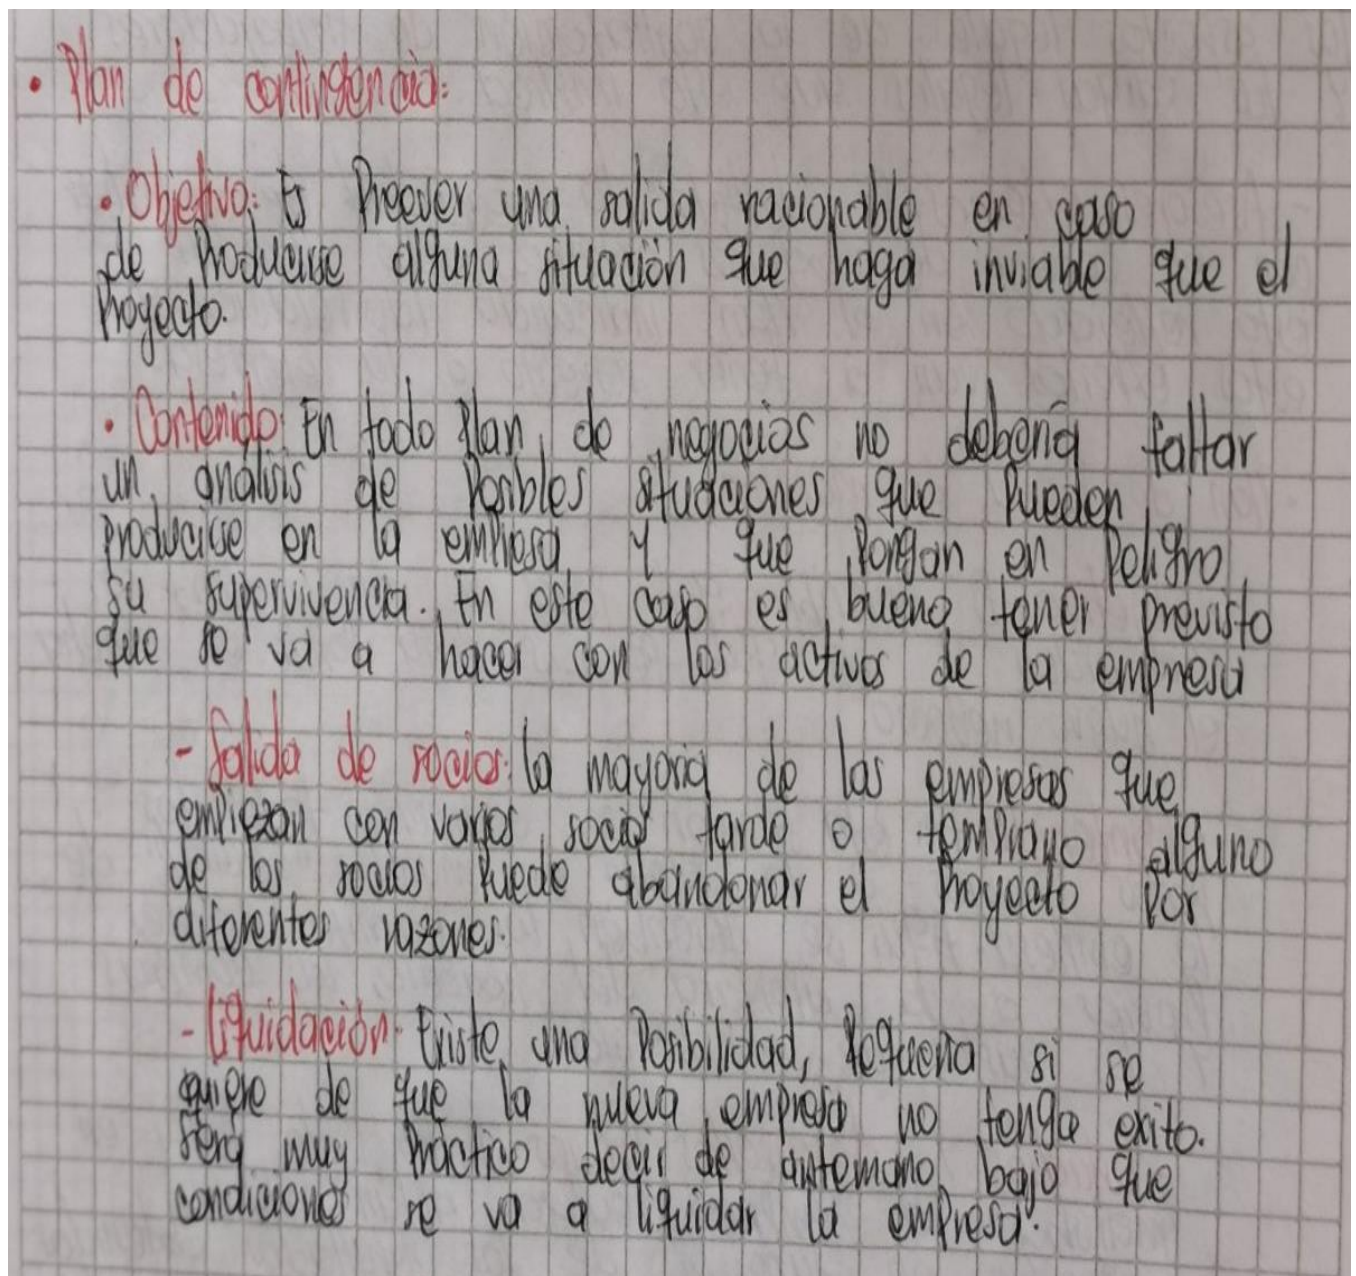 • Plan de contingencia:
• Objetivo: Es Preever una salida racionable en caso
de Producirse alguna situación que haga inviable que el
Proyecto.
• Contenido: En todo Plan de negocios no debería faltar
un análisis de Posibles situaciones que Pueden
producirse en la empresa y que Pongan en Peligro
su supervivencia. En este caso es bueno tener previsto
que se va a hacer con los activos de la empresa
- Salida de socios: la mayoria de las empresas que
empiezan con varios socios tarde o temprano alguno
de los socios Puede abandonar el Proyecto Por
diferentes razones.
- Liquidación: Existe una Posibilidad, Pequeña si se
quiere de que la nueva empresa no tenga exito.
Sera muy Practico decir de antemano bajo que
condiciones se va a liquidar la empresa.